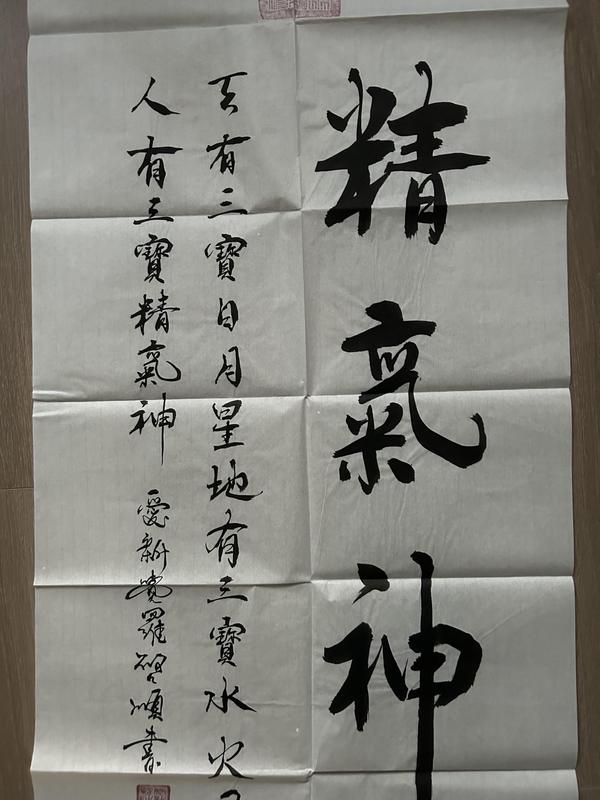 精氣神
天有三寶日月星地有三寶水火
人有三寶精氣神 愛新覺羅啓順書